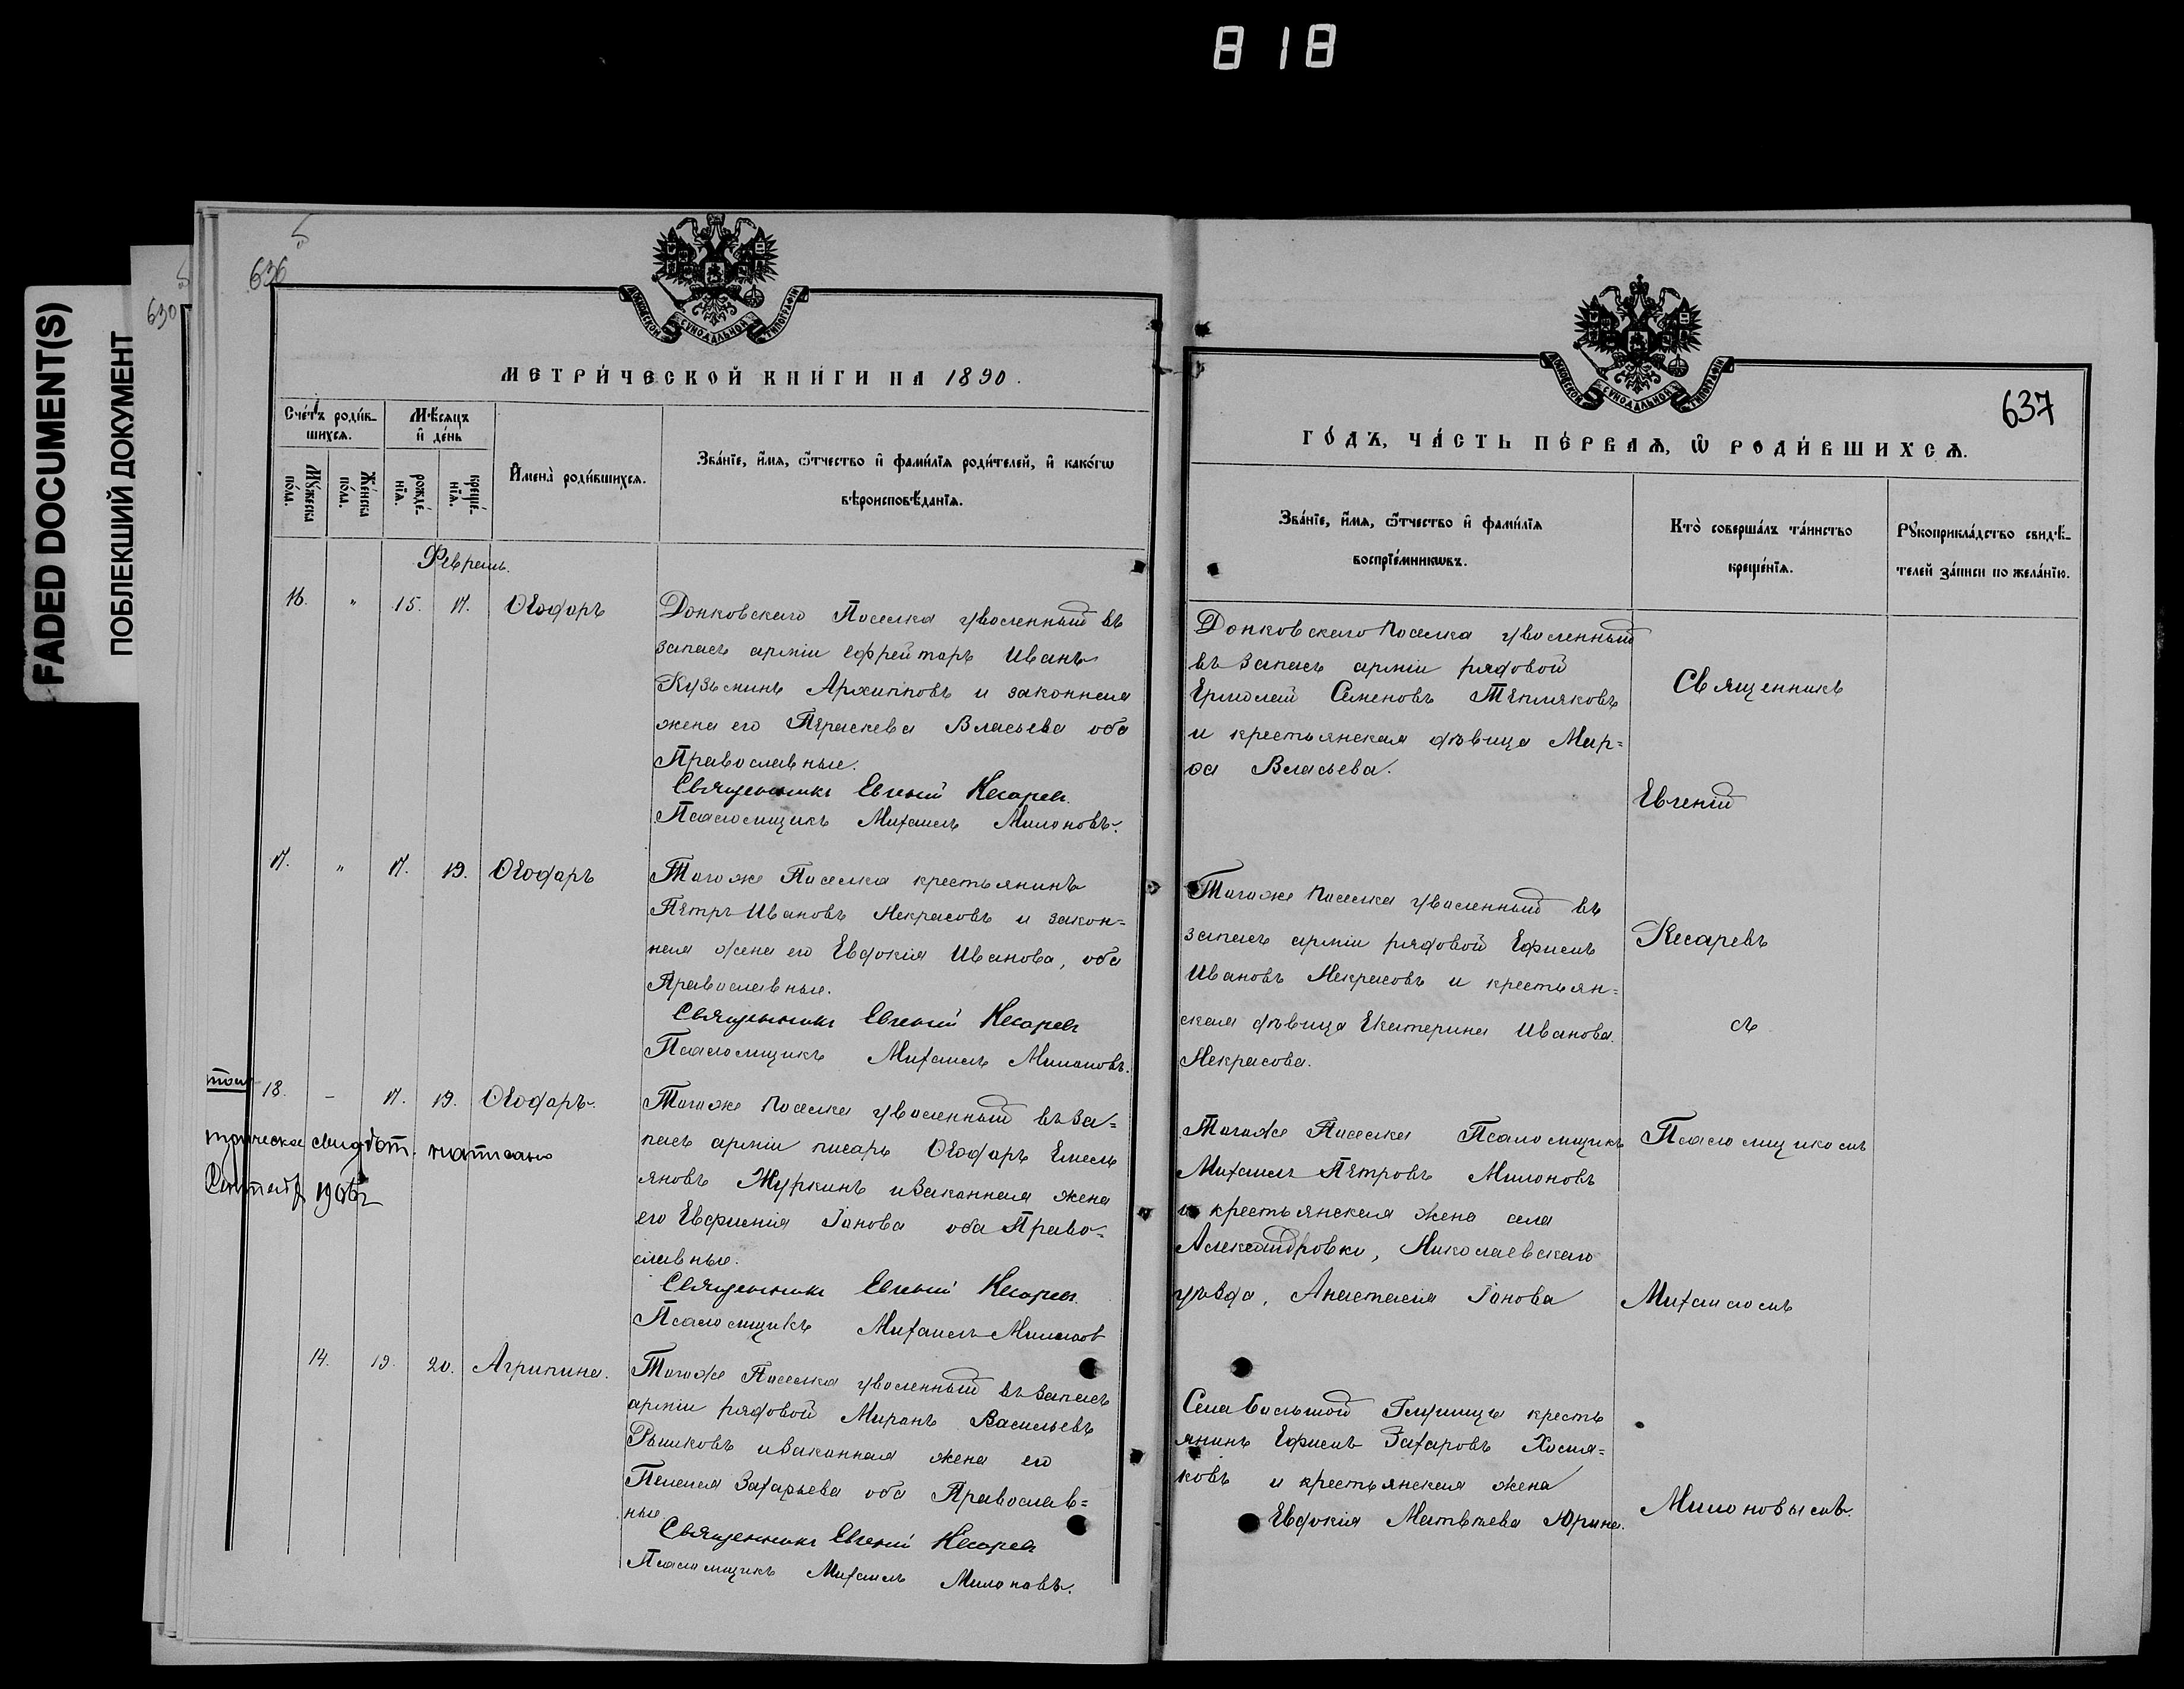 818
FADED DOCUMENT(S)
ПОБЛЕКШИЙ ДОКУМЕНТ
630
636
МОСКОВСКОЙ СѴНОДАЛЬНОЙ ТИПОГРАФІИ
МЕТРИ́ЧЕСКОЙ КНИ́ГИ НА 1890.
Сче́тъ роди́в-
шихсѧ.
Мѣ́сѧцъ
и҆ де́нь
Мꙋ́жеска
по́ла.
Же́нска
по́ла.
рожде́-
нїѧ.
креще́-
нїѧ.
И҆мена̀ роди́вшихсѧ.
Зва́нїе, и҆́мѧ, ѻ҆́тчество и҆ фами́лїѧ роди́телей, и҆ како́гѡ
вѣроисповѣ́данїѧ.
Февраль.
16. " 15. 17. Ѳеодоръ
Донковскаго Поселка уволенный въ
запасъ арміи ефрейторъ Иванъ
Кузьминъ Архиповъ и законная
жена его Параскева Власьева оба
Православные.
Священникъ Евгеній Кесаревъ.
Псаломщикъ Михаилъ Милоновъ.
17. " 17. 19. Ѳеодоръ
Тогоже Поселка крестьянинъ
Петръ Ивановъ Некрасовъ и закон=
ная жена его Евдокія Иванова, оба
Православные.
Священникъ Евгеній Кесаревъ
Псаломщикъ Михаилъ Милоновъ.
18. - 17. 19. Ѳеодоръ.
Тогоже Поселка уволенный въ за=
пасъ арміи писарь Ѳеодоръ Емель
яновъ Журкинъ и законная жена
его Евфимія Іонова оба Право-
славные.
Священникъ Евгеній Кесаревъ.
Псаломщикъ Михаилъ Милонов
14. 19. 20. Агрипина.
Тогоже Поселка уволенный въ запасъ
арміи рядовой Миронъ Васильевъ
и законная жена его
Пелагея Захарьева оба Православ=
ные
Священникъ Евгеній Кесаревъ
Псаломщикъ Михаилъ Милоновъ.
637
МОСКОВСКОЙ СѴНОДАЛЬНОЙ ТИПОГРАФІИ
ГО́ДЪ, ЧА́СТЬ ПЕ́РВАѦ, Ѿ РОДИ́ВШИХСѦ.
Зва́нїе, и҆́мѧ, ѻ҆́тчество и҆ фами́лїѧ
воспрїе́мникѡвъ.
Кто̀ соверша́лъ та́инство
креще́нїѧ.
Рꙋкоприкла́дство свидѣ́-
телей за́писи по жела́нїю.
Донковскаго Поселка уволенный
въ запасъ арміи рядовой
Ермолай Семеновъ Тепляковъ
и крестьянская дѣвица Мар=
ѳа Власьева.
Тогоже Поселка уволенный въ
запасъ арміи рядовой Ефимъ
Ивановъ Некрасовъ и крестьян=
ская дѣвица Екатерина Иванова
Некрасова.
Тогоже Поселка Псаломщикъ
Михаилъ Петровъ Милоновъ
и крестьянская жена села
Александровки, Николаевскаго
уѣзда, Анастасія Іонова
Села Большой Глушицы кресть
янинъ Ефимъ Захаровъ Хомя=
ковъ и крестьянская жена
Евдокія Матвѣева Юрина.
Священникъ
Евгеній
Кесаревъ
съ
Псаломщикомъ
Михаиломъ
Милоновымъ.